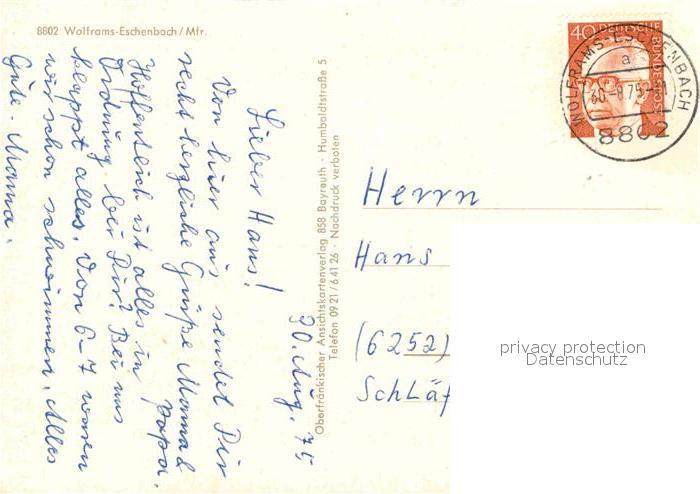 8802 Wolframs-Eschenbach / Mfr.
30. Aug. 75
Lieber Hans!
Von hier aus sendet Dir
recht herzliche Grüße Mama &
Papa.
Hoffentlich ist alles in
Ordnung bei Dir? Bei uns
klappt alles. Von 6-7 waren
wir schon schwimmen. Alles
Gute. Mama.
Oberfränkischer Ansichtskartenverlag 858 Bayreuth · Humboldtstraße 5
Telefon 09 21 / 6 41 26 · Nachdruck verboten
40 DEUTSCHE BUNDESPOST
WOLFRAMS-ESCHENBACH
a
8802
Herrn
Hans
(6252)
Schläf
privacy protection
Datenschutz